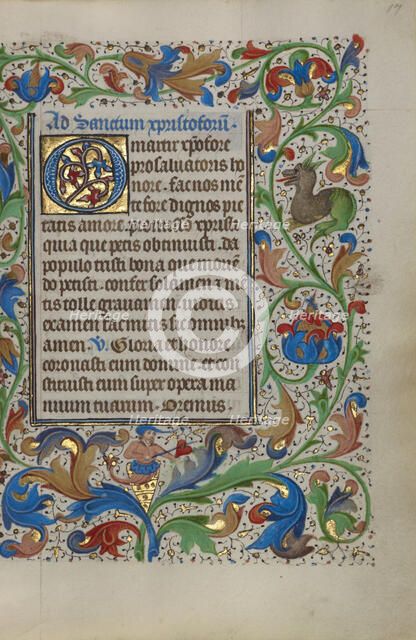 17
Ad Sanctum xpristoforū.
O martir xp̄ofore
pro salvatoris ho
nore. fac nos me
te fore dignos pie
tatis amore.
quia que petis obtinuisti. da
populo tristi bona que
do petisti. confer solamen z
tis tolle gravamen.
examen fac mitius sit omnibus
amen. V. Gloria et honore
coronasti eum domine. et con
stituisti eum super opera ma
nuum tuarum. Oremus
Heritage
Heritage
Heritage
Heritage